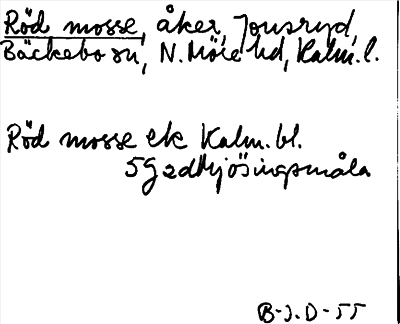 Röd mosse, åker, Jonsryd,
Bäckebo sn, N. Möre hd, Kalm. l.
Röd mosse ek Kalm. bl.
5G2d Mjösingsmåla
B-J.D-55